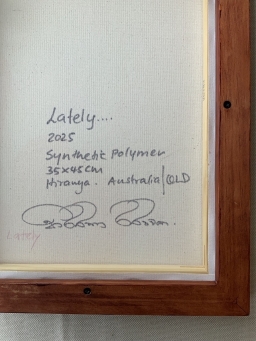 Lately....
2025
Synthetic Polymer
35x45cm
Hiranya. Australia/QLD
Lately